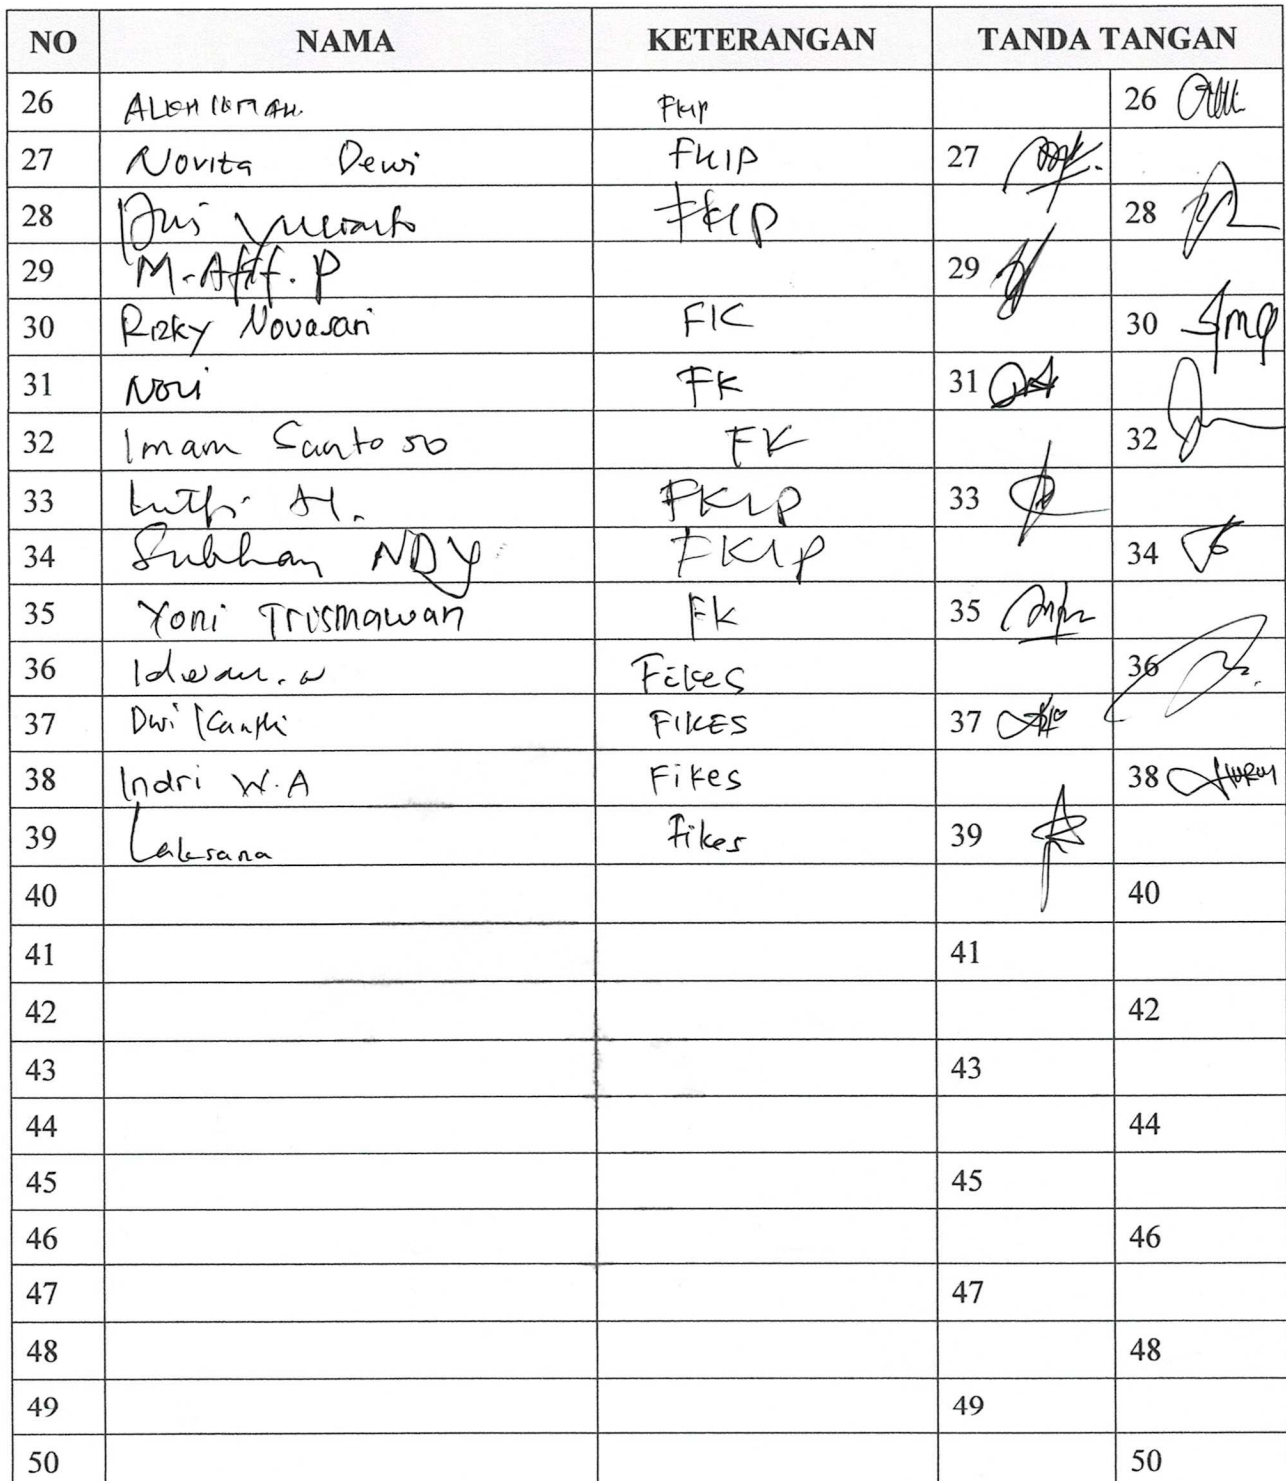 NO NAMA KETERANGAN TANDA TANGAN
26 FKIP 26
27 Novita Dewi FKIP 27
28 FKIP 28
29 M. Afif. P 29
30 Rizky Novasari FIC 30
31 Novi FK 31
32 Imam Santoso FK 32
33 Lutfi A. FKIP 33
34 Subhan NDY FKIP 34
35 Yoni Trismawan FK 35
36 Idwan. w Fikes 36
37 Dwi Kanthi FIKES 37
38 Indri W.A Fikes 38
39 Laksana Fikes 39
40 40
41 41
42 42
43 43
44 44
45 45
46 46
47 47
48 48
49 49
50 50